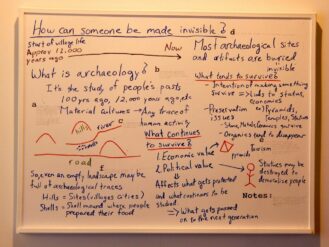 How can someone be made invisible?
Start of village life
Approx 12,000
years ago
Now
What is archaeology?
It's the study of people's pasts
100 yrs ago, 12,000 years ago, etc
Material cultures → Any trace of
human activity
a
b
c
hills
rivers
road
So, even an empty landscape may be
full of archaeological traces
Hills = Sites (villages, cities)
Shells = Shell mound where people
prepared their food
What continues
to survive?
1. Economic value
2. Political value
Affects what gets protected
and what continues to be
studied
→ What gets passed
on to the next generation
d
Most archaeological sites
and artifacts are buried
invisible
What tends to survive?
- Intention of making something
survive → Links to status,
economics
- Preservation
issues
Pyramids,
Temples, Statues
- Stone, Metals, Ceramics survive
- Organics tend to disappear
tourism
frauds
Statues may be
destroyed to
demoralise people
Notes: